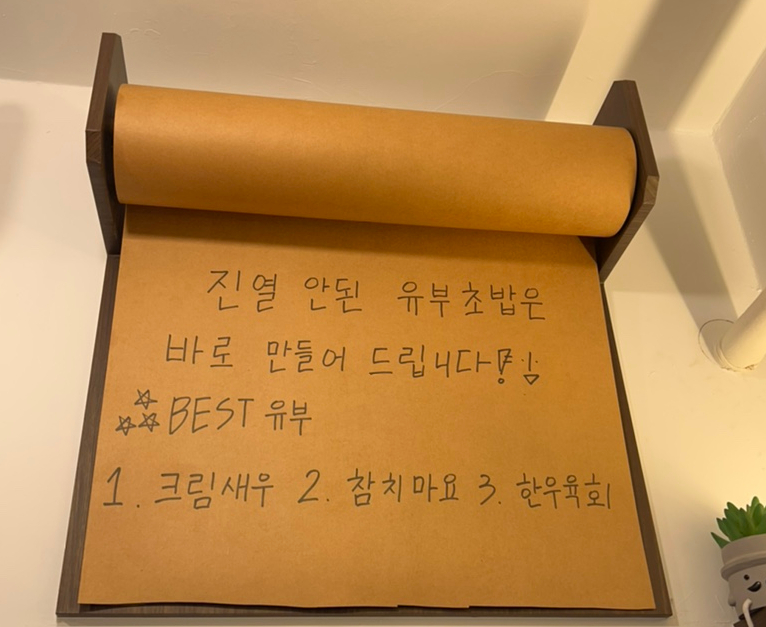 진열 안된 유부초밥은
바로 만들어 드립니다!
BEST 유부
1. 크림새우 2. 참치마요 3. 한우육회